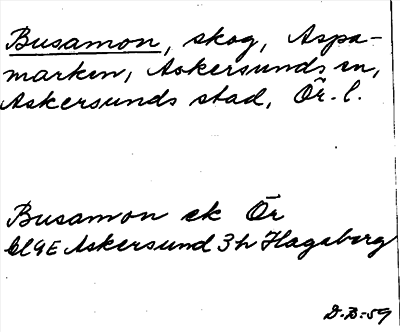 Busamon, skog, Aspa-
marken, Askersunds sn,
Askersunds stad, Ör. l.
Busamon ek Ör
bl 9E Askersund 3h Hagaberg
D.B.-59